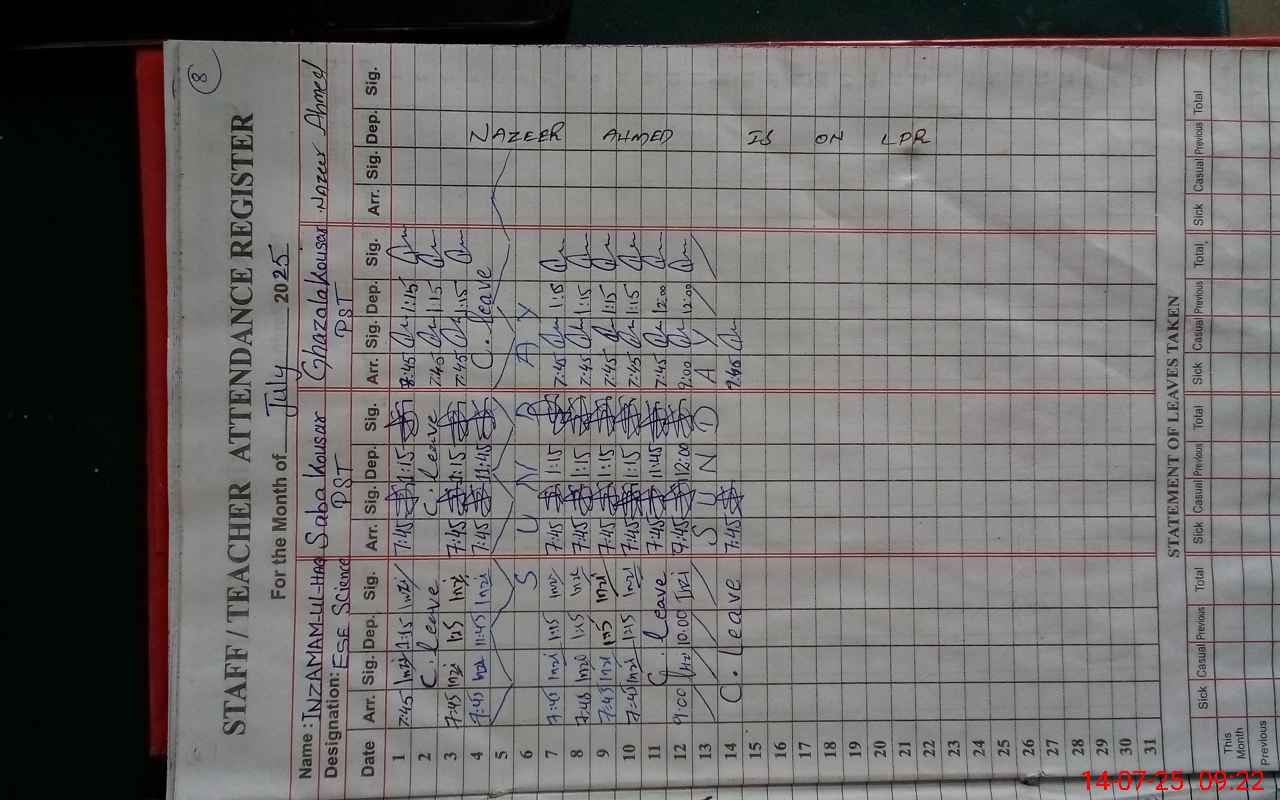 8
STAFF / TEACHER ATTENDANCE REGISTER
For the Month of July 2025
Name : INZAMAM-UL-HAQ Saba Kousar Ghazala Kousar Nazeer Ahmed
Designation: ESE Science PST PST
Date Arr. Sig. Dep. Sig. Arr. Sig. Dep. Sig. Arr. Sig. Dep. Sig. Arr. Sig. Dep. Sig.
1 7:45 1:15 7:45 1:15 7:45 1:15
2 C. leave C. leave 7:45 1:15
3 7:45 1:15 7:45 1:15 7:45 1:15
4 7:45 11:45 7:45 11:45 C. leave
5
6 S U N D A Y
7 7:45 1:15 7:45 1:15 7:45 1:15
8 7:45 1:15 7:45 1:15 7:45 1:15
9 7:45 1:15 7:45 1:15 7:45 1:15
10 7:45 1:15 7:45 1:15 7:45 1:15
11 C. leave 7:45 11:45 7:45 12:00
12 9:00 10:00 9:45 12:00 9:00 12:00
13 S U N D A Y
14 C. leave 7:45 7:45
15
16
17
18
19
20
21
22
23
24
25
26
27
28
29
30
31
NAZEER AHMED IS ON LPR
STATEMENT OF LEAVES TAKEN
Sick Casual Previous Total Sick Casual Previous Total Sick Casual Previous Total Sick Casual Previous Total
This Month
Previous
14-07-25 09:22